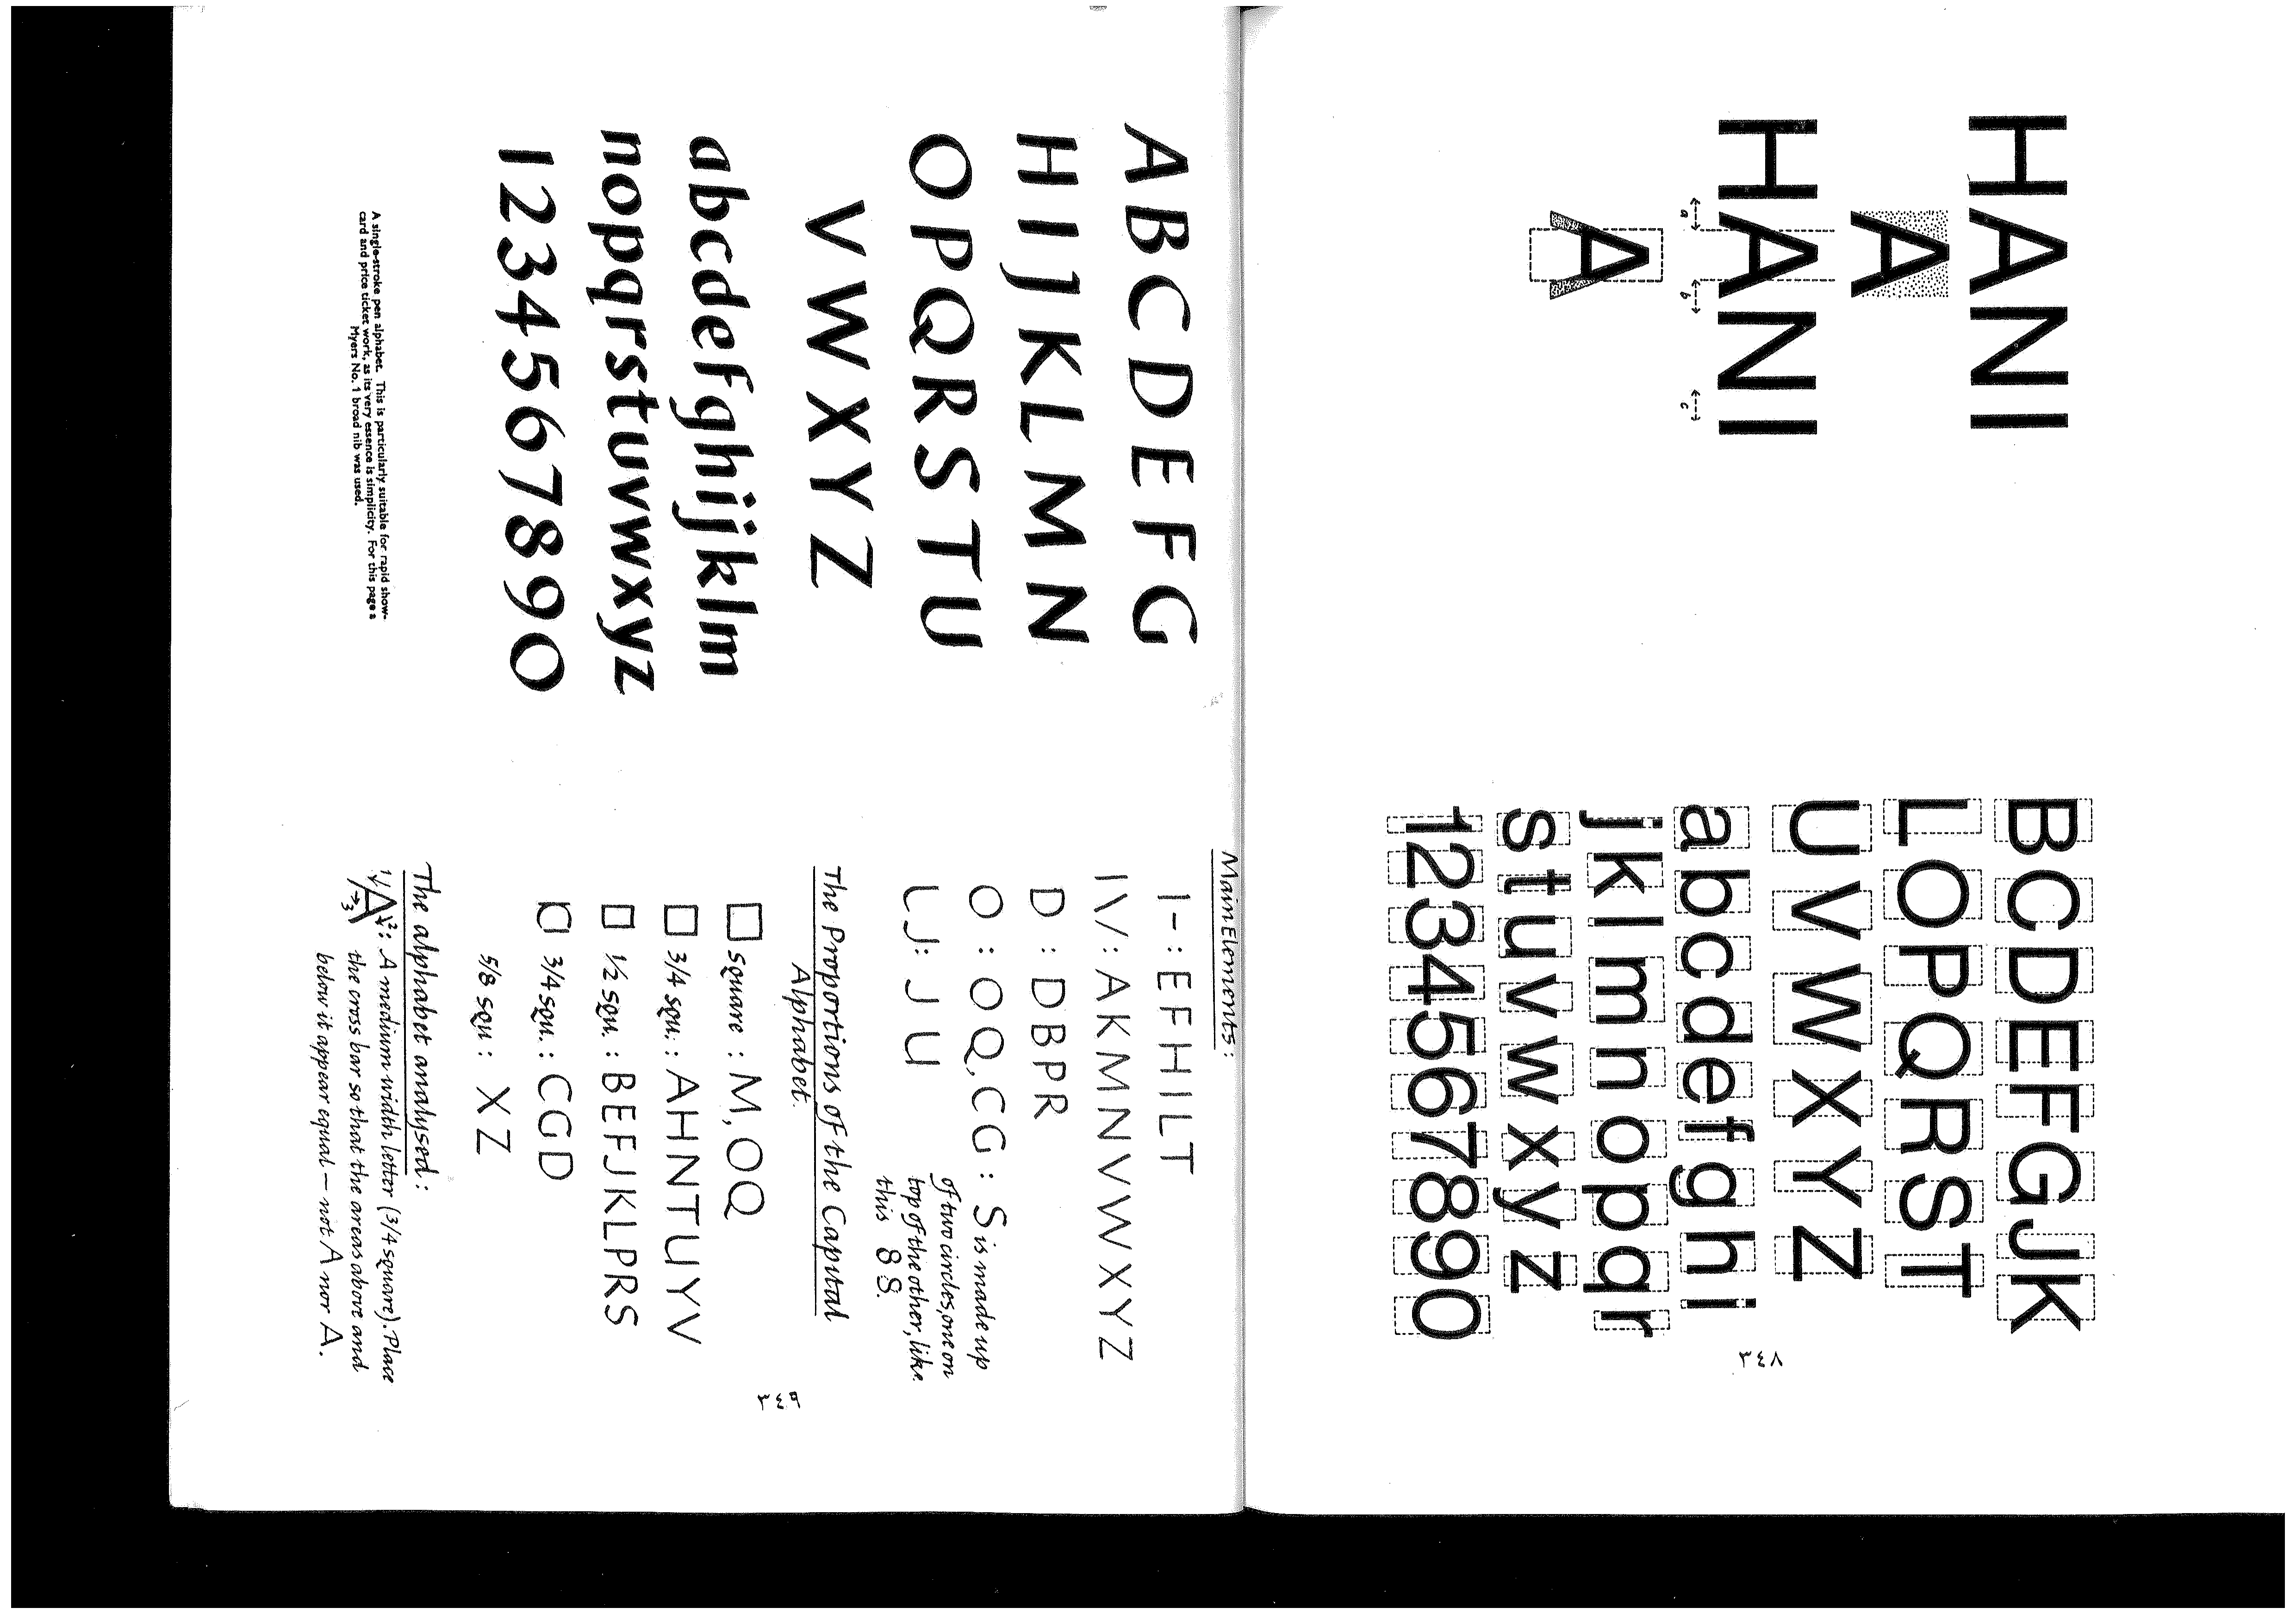 HANI
A
HANI
a b c
A
BCDEFGJK
LOPQRST
UVWXYZ
abcdefghi
jklmnopqr
stuvwxyz
1234567890
٣٤٨
ABCDEFG
HIJKLMN
OPQRSTU
VWXYZ
abcdefghijklm
nopqrstuvwxyz
1234567890
A single-stroke pen alphabet. This is particularly suitable for rapid show-
card and price ticket work, as its very essence is simplicity. For this page a
Myers No. 1 broad nib was used.
Main Elements:
I - : E F H I L T
I \ / : A K M N V W X Y Z
D : D B P R
O : O Q, C G : S is made up
of two circles, one on
top of the other, like
this 8 S.
L J : J U
The Proportions of the Capital
Alphabet.
□ square : M, O Q
□ 3/4 squ. : A H N T U Y V
□ 1/2 squ. : B E F J K L P R S
3/4 squ. : C G D
5/8 squ : X Z
The alphabet analysed :
1 A 2 3 : A medium width letter (3/4 square). Place
the cross bar so that the areas above and
below it appear equal — not A nor A.
٣٤٩